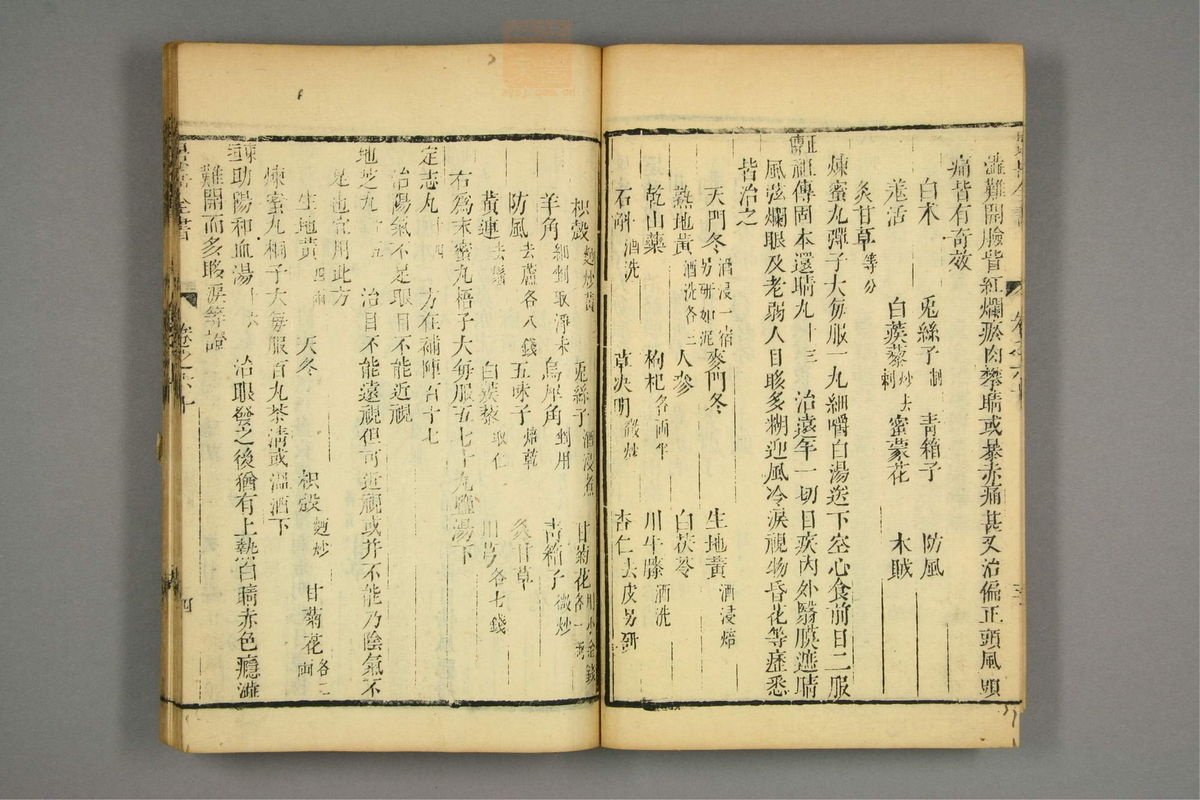 澁難開臉眥紅爛瘀肉攀睛或暴赤痛甚又治偏正頭風頭
痛皆有奇效
白术 兎絲子制 青葙子 防風
羗活 白蒺藜炒去刺 蜜蒙花 木賊
炙甘草等分
煉蜜丸彈子大每服一丸細嚼白湯送下空心食前日二服
祖傳固本還睛丸十三 治遠年一切目疾內外翳膜遮睛
風弦爛眼及老弱人目眵多糊迎風冷淚視物昏花等症悉
皆治之
天門冬酒浸一宿另研如泥 麥門冬 生地黃酒浸焙
熟地黃酒洗各三 人參 白茯苓
乾山藥 枸杞各両半 川牛膝酒洗
石斛酒洗 草决明微炒 杏仁去皮另研
枳殼麵炒黃 兎絲子酒浸煮 甘菊花
羊角細剉取淨末 烏犀角剉用 青葙子微炒
防風去蘆各八錢 五味子焙乾 炙甘草
黃連去鬚 白蒺藜取仁 川芎各七錢
右爲末蜜丸梧子大每服五七十丸鹽湯下
定志丸十四 方在補陣百十七
治陽氣不足眼目不能近視
地芝丸十五 治目不能遠視但可近視或并不能乃陰氣不
足也宜用此方
生地黃四兩 天冬 枳殼麵炒 甘菊花各二両
煉蜜丸桐子大每服百丸茶淸或溫酒下
東垣助陽和血湯十六 治眼發之後猶有上熱白睛赤色癮澁
難開而多眵淚等證
卷之六十
四